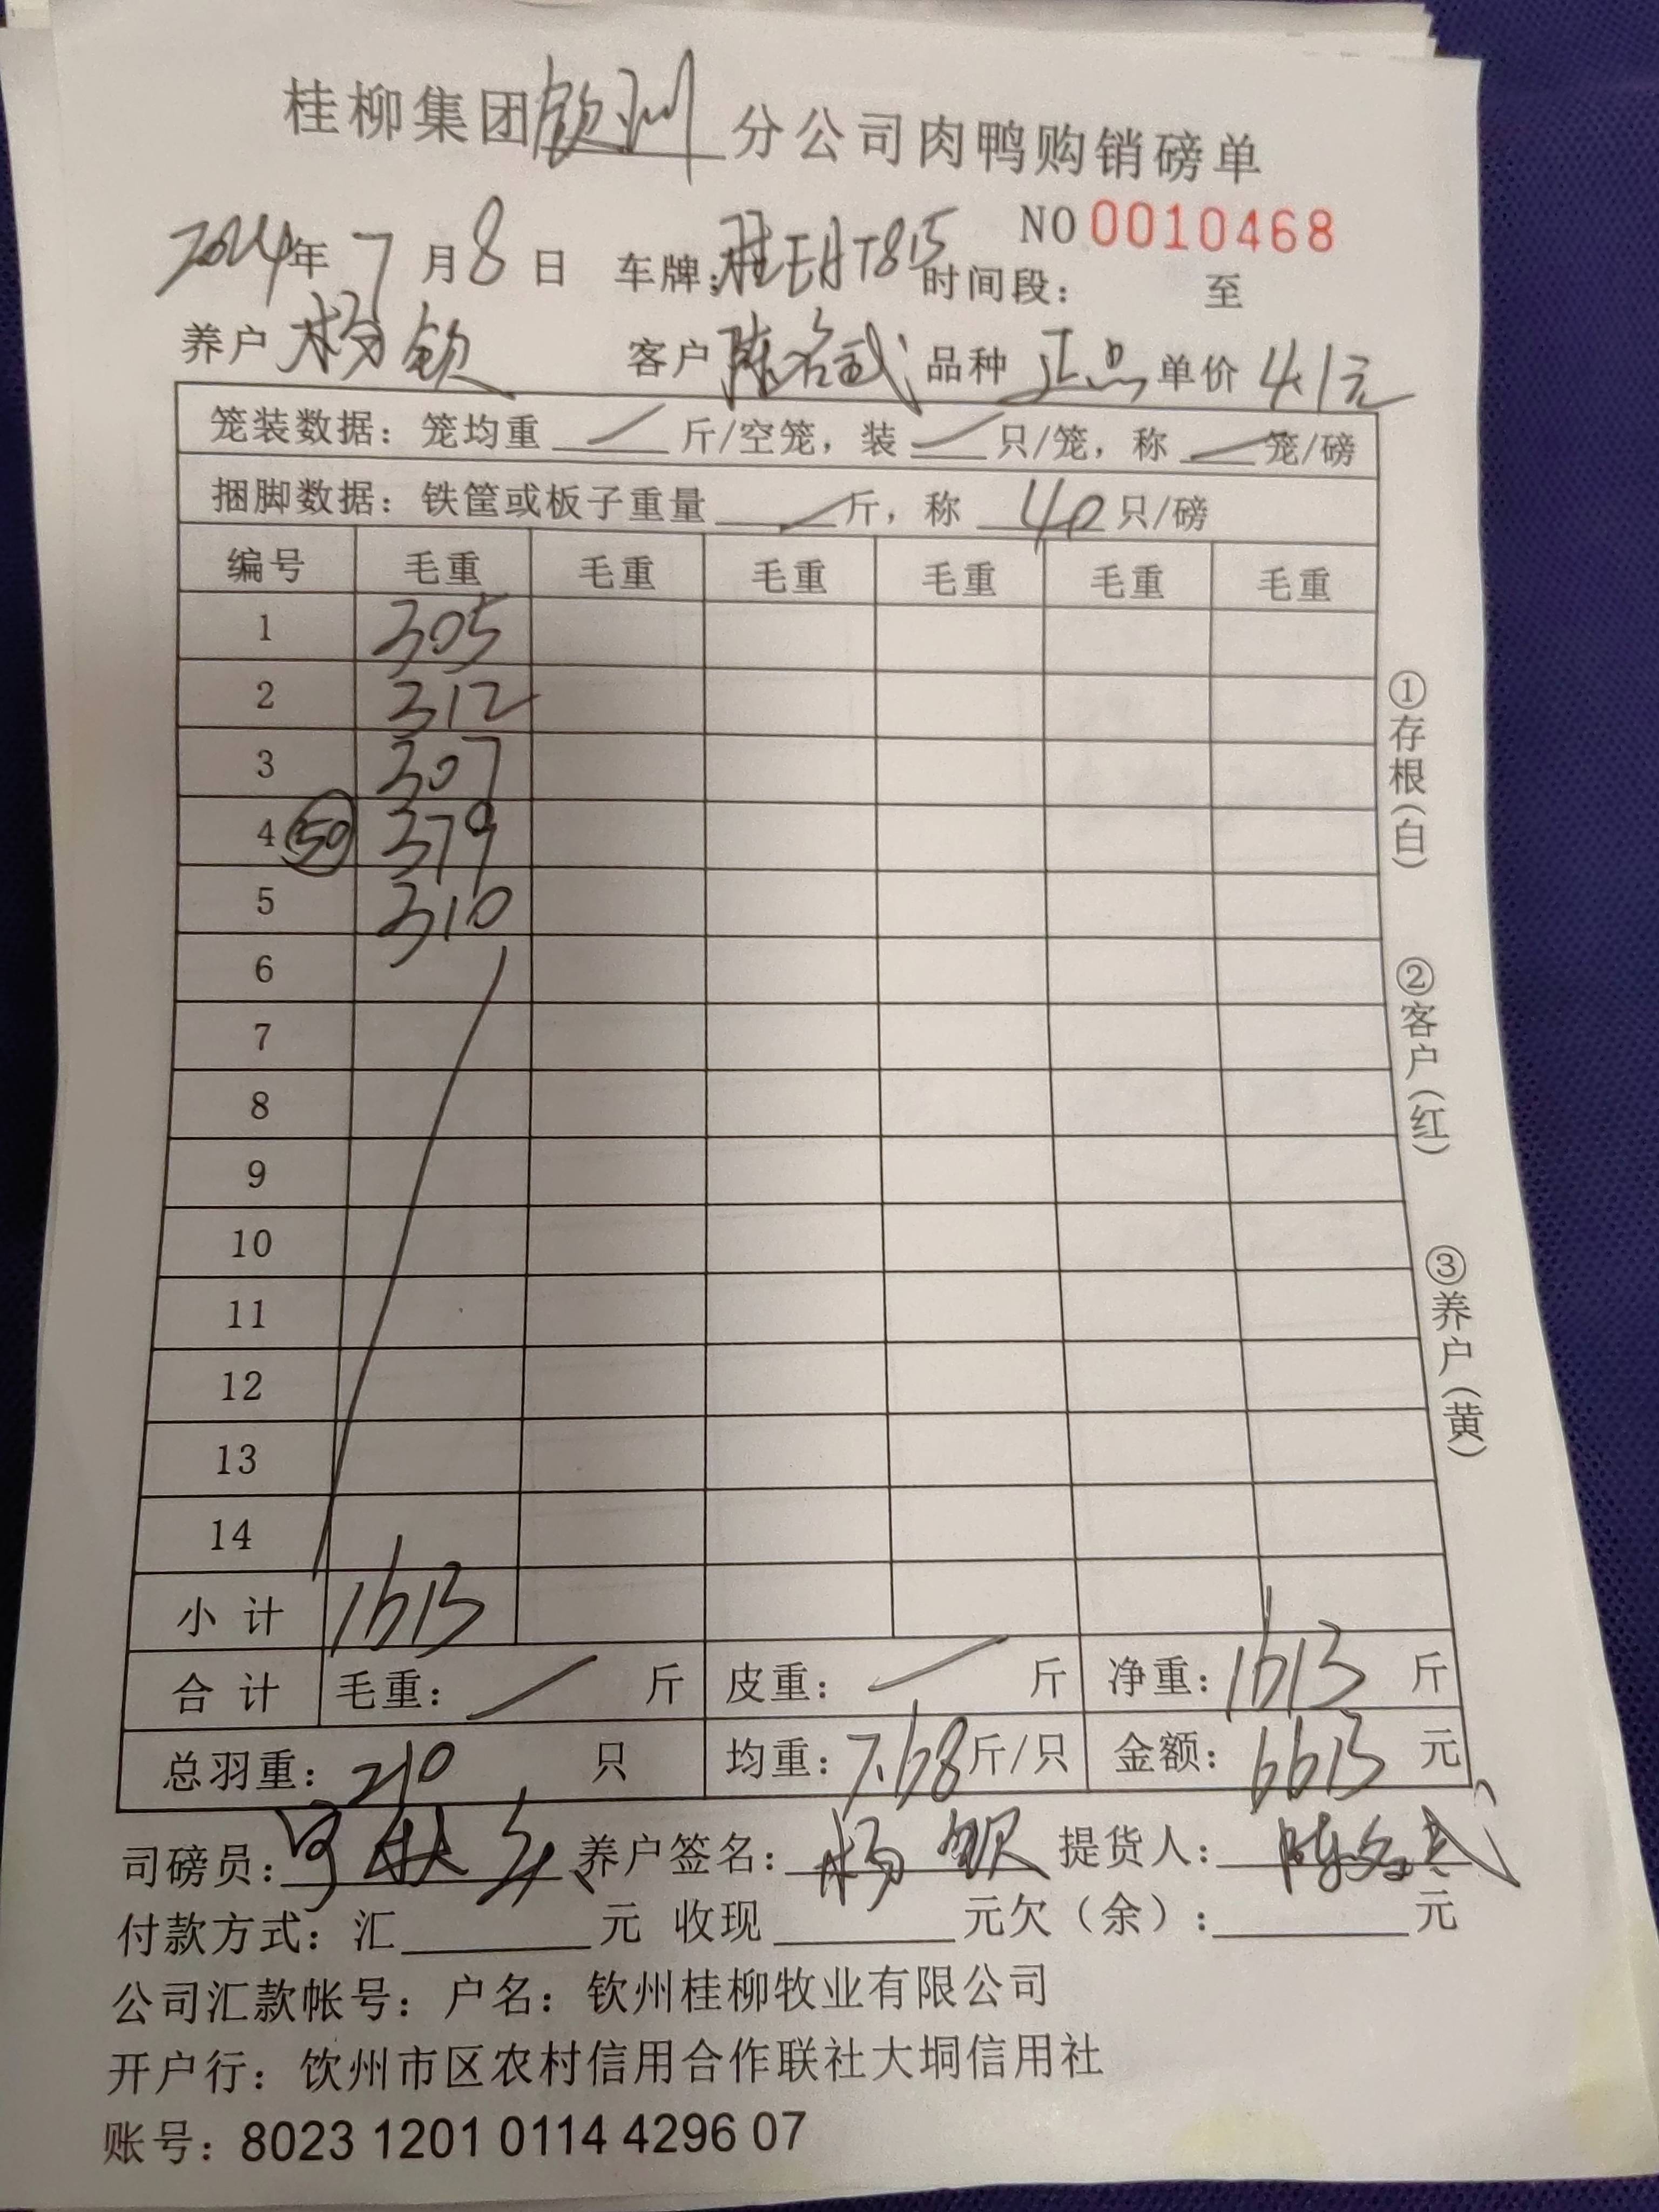 桂柳集团钦州分公司肉鸭购销磅单
NO 0010468
2024年 7月8日 车牌: 时间段: 至
养户 杨钦 客户 陈名武 品种 正品 单价 4.1元
笼装数据: 笼均重 / 斤/空笼, 装 / 只/笼, 称 / 笼/磅
捆脚数据: 铁筐或板子重量 / 斤, 称 40 只/磅
编号 毛重 毛重 毛重 毛重 毛重 毛重
1 305
2 312
3 307
4 50 379
5 310
6
7
8
9
10
11
12
13
14
小计 1613
合计 毛重: / 斤 皮重: / 斤 净重: 1613 斤
总羽重: 210 只 均重: 7.68 斤/只 金额: 6613 元
司磅员: 养户签名: 杨钦 提货人: 陈名武
付款方式: 汇 元 收现 元欠(余): 元
公司汇款帐号: 户名: 钦州桂柳牧业有限公司
开户行: 饮州市区农村信用合作联社大垌信用社
账号: 8023 1201 0114 4296 07
①存根(白)
②客户(红)
③养户(黄)